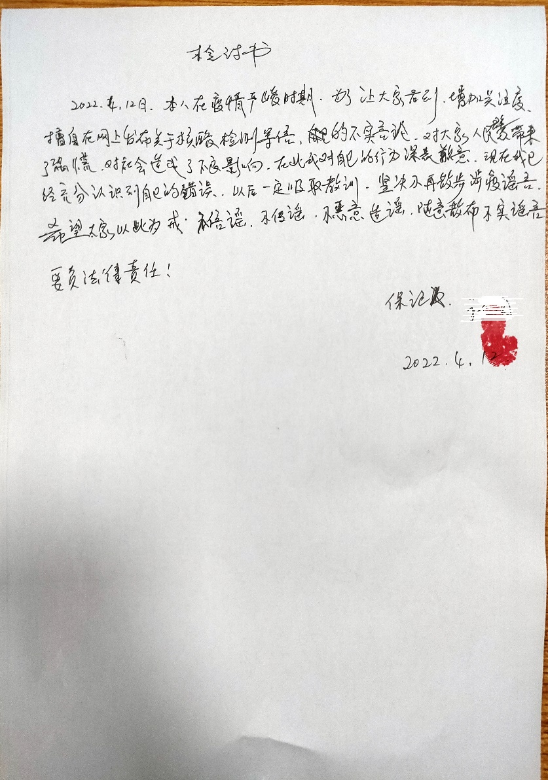 检讨书
2022.4.12日.本人在疫情严峻时期.为了让大家看到,增加关注度,
擅自在网上发布关于核酸检测等信,的不实言论.对大家人民带来
了恐慌.对社会造成了不良影响.在此我对自己的行为深表歉意.现在我已
经充分认识到自己的错误.以后一定吸取教训.坚决不再散步涉疫谣言.
希望大家以此为戒.不信谣.不传谣.不恶意造谣.随意散布不实谣言
要负法律责任!
保证人.
2022.4.12